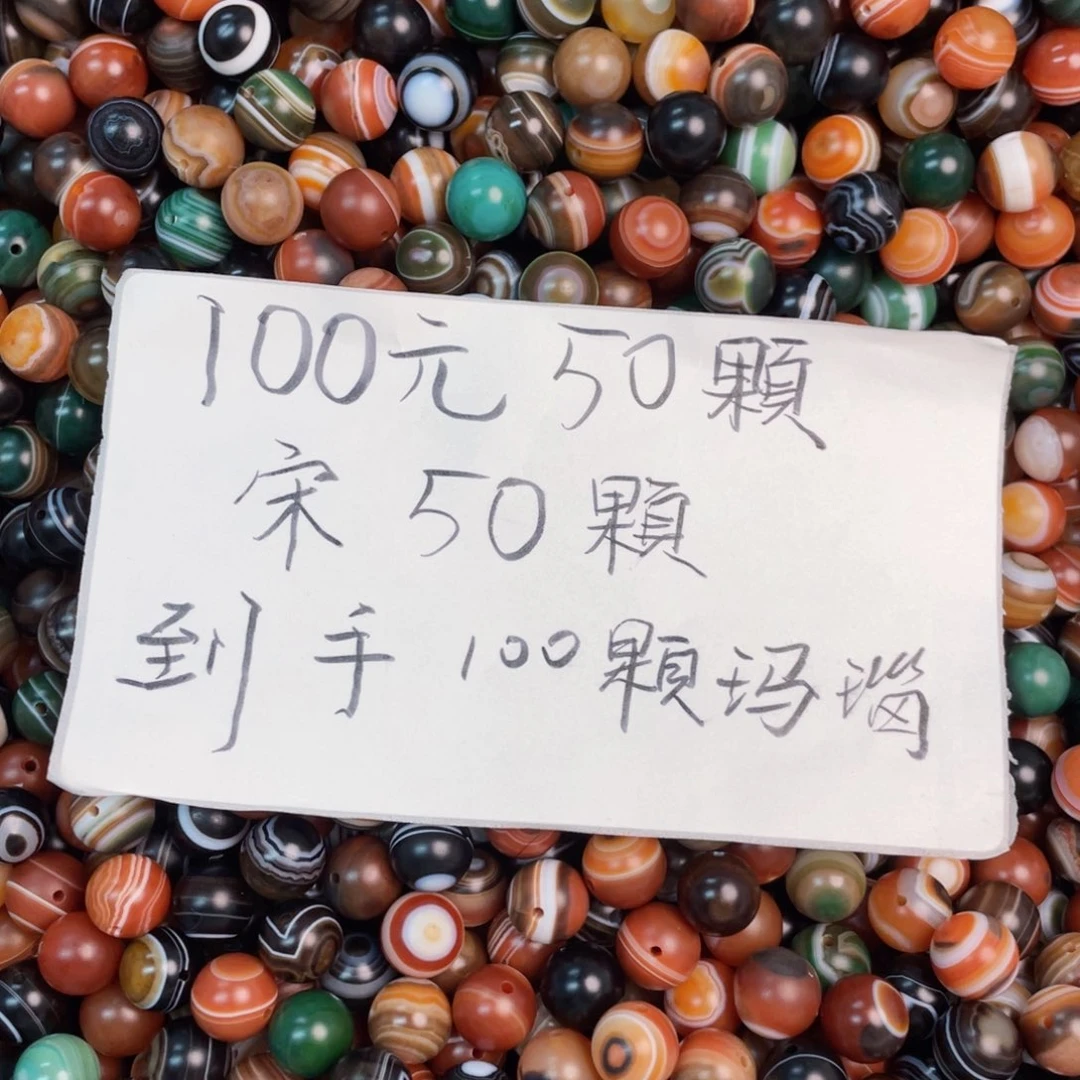 100元 50顆
宋 50顆
到手 100顆玛瑙